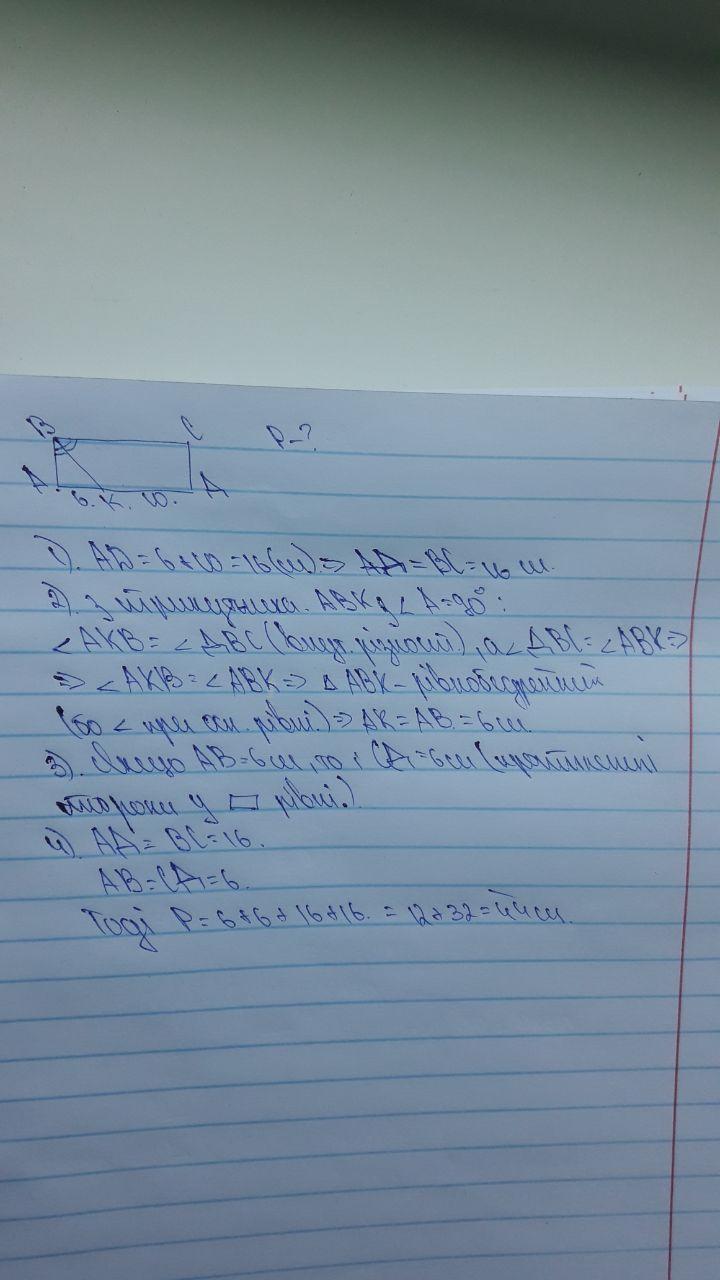 B C P-?
A 6. K. 10. Д
1). AD = 6+10 = 16(см) => АД = BC = 16 см.
2) З трикутника. ABK, ∠A=90°:
∠AKB = ∠ДBC (внут. різност.), а ∠ДBC = ∠ABK =>
=> ∠AKB = ∠ABK => △ABK - рівнобедрений
(бо ∠ при осн. рівні.) => AK = AB. = 6 см.
3). Якщо AB = 6 см, то і CД = 6 см (протилежні
сторони у ▭ рівні.)
4). АД = BC = 16.
AB = CД = 6.
Тоді P = 6+6+16+16. = 12+32 = 44 см.